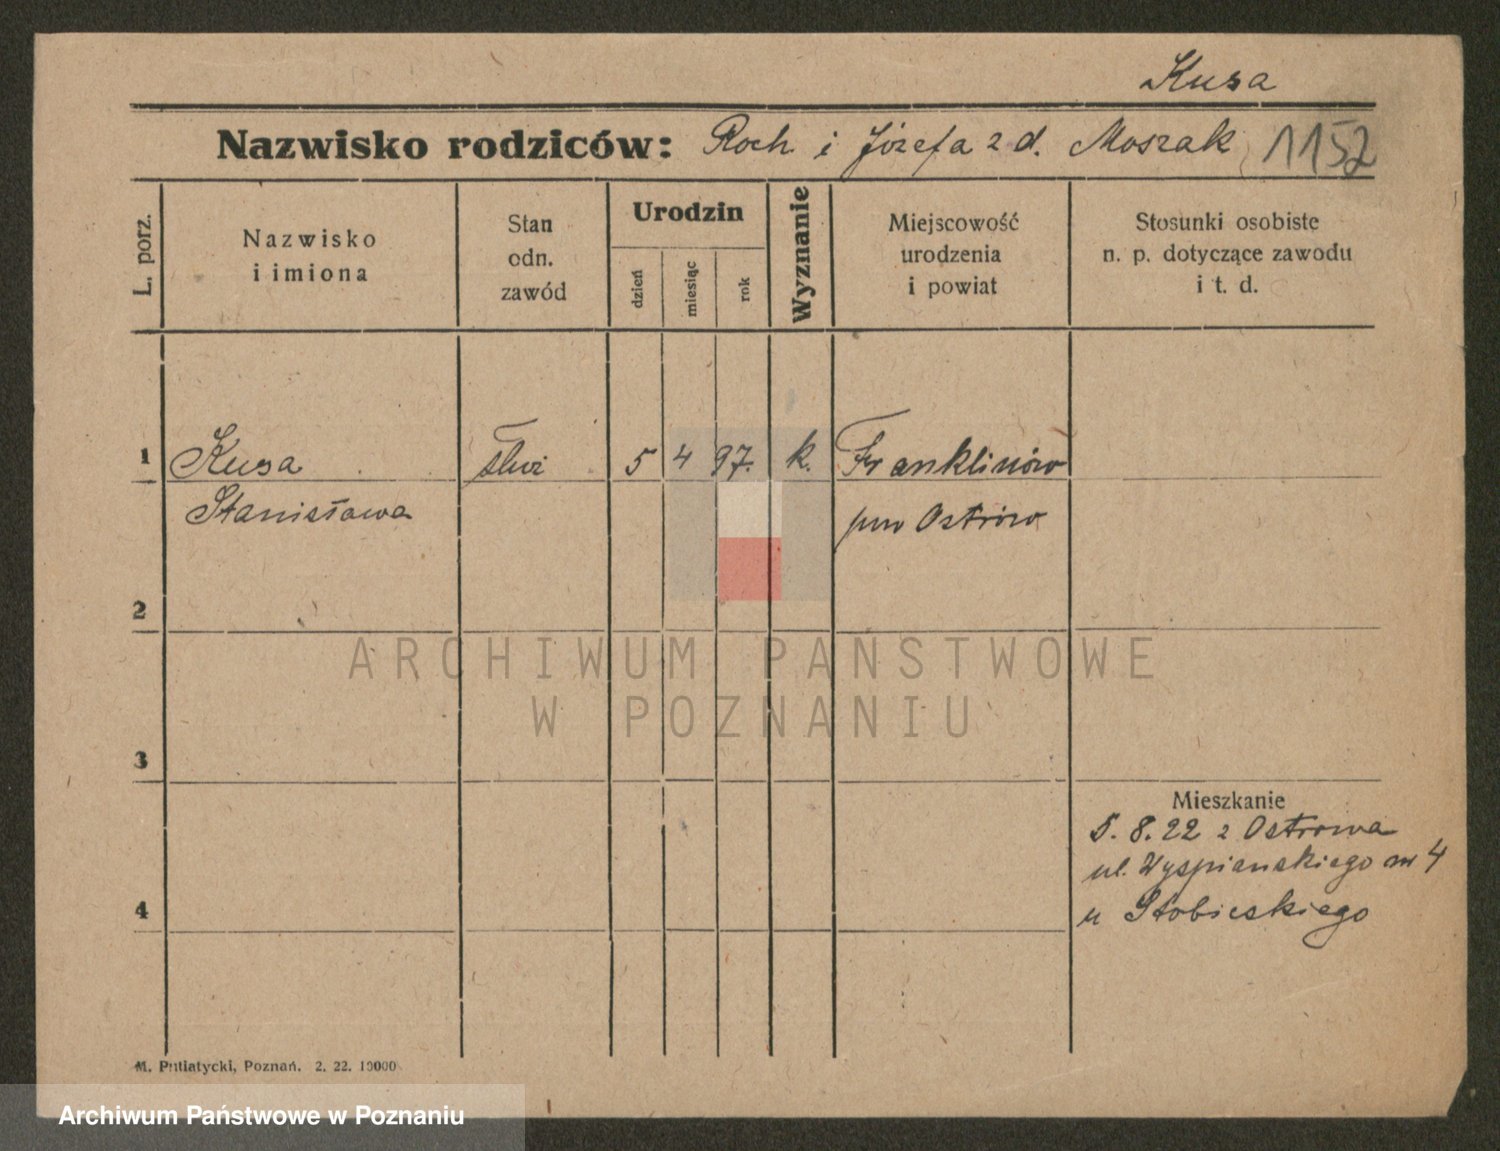 Kusa
Nazwisko rodziców: Roch i Józefa z d. Moszak 1152
L. porz.
Nazwisko
i imiona
Stan
odn.
zawód
Urodzin
dzień
miesiąc
rok
Wyznanie
Miejscowość
urodzenia
i powiat
Stosunki osobiste
n. p. dotyczące zawodu
i t. d.
1 Kusa 5 4 97. k. Franklinów
Stanisława pow Ostrów
2
ARCHIWUM PAŃSTWOWE
W POZNANIU
3
Mieszkanie
5. 8. 22 z Ostrowa
ul. Wyspianskiego 4
4
u Stobieskiego
M. Putiatycki, Poznań. 2. 22. 10000
Archiwum Państwowe w Poznaniu